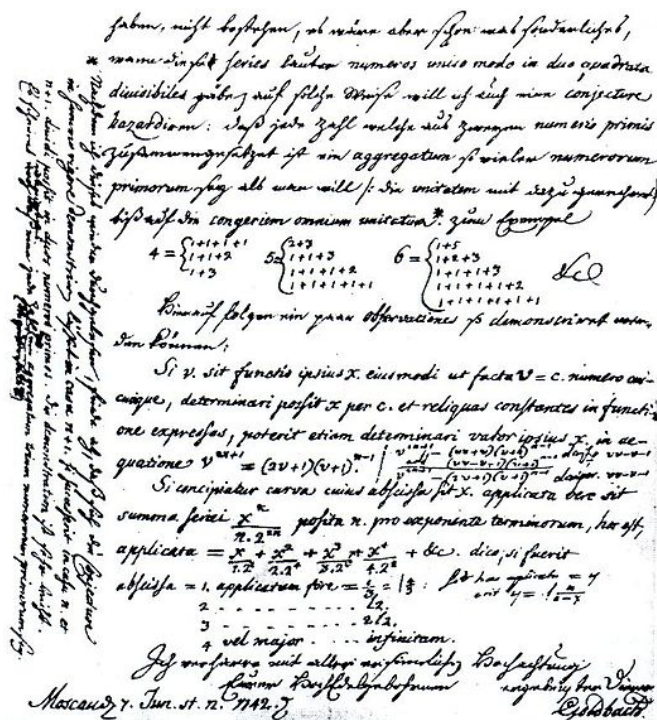 haben, nicht bestehen, es wäre aber schon was sonderliches,
wann diese series lauter numeros unico modo in duo quadrata
divisibiles gäbe, auf solche Weise will ich auch eine conjecture
hazardiren: daß jede Zahl welche aus zweyen numeris primis
zusammengesetzet ist ein aggregatum so vieler numerorum
primorum sey als man will /: die unitatem mit dazu gerechnet
biß auf die congeriem omnium unitatum* zum Exempel
4 = { 1+1+1+1 5 = { 2+3 6 = { 1+5
1+1+2 1+1+3 1+2+3
1+3 1+1+1+2 1+1+1+3
1+1+1+1+1 1+1+1+1+2
1+1+1+1+1+1 &c
Hierauf folgen ein paar observationes so demonstriret wer-
den können:
Si v. sit functio ipsius x. eiusmodi ut facta v = c. numero cui-
cunque, determinari possit x per c. et reliquas constantes in functi-
one expressas, poterit etiam determinari valor ipsius x. in ae-
quatione v^{2n+1} = (2v+1)(v+1)^{n-1}
Si concipiatur curva cuius abscissa sit x. applicata vero sit
summa seriei x^n/(n.2^{2n}) posita n. pro exponente terminorum, hoc est,
applicata = x/(1.2^2) + x^2/(2.2^4) + x^3/(3.2^6) + x^4/(4.2^8) + &c. dico, si fuerit
abscissa = 1. applicatam fore = l 4/3
2 . . . . . . . . l2.
3 . . . . . . . . 2l2.
4 vel major . . . . infinitam.
Ich verharre mit aller ersinnlichen Hochachtung
Eurer HochEdelgebohrnen ergebenster Diener
Moscau d. 7. Jun. st. n. 1742. Goldbach.
* Nachdem ich dieses wieder durchgelesen, finde ich, daß sich die Conjecture
in summo rigore demonstriren läßet in casu n+1. si successerit in casu n. et
n+1. dividi possit in duos numeros primos. Die demonstration ist sehr leicht.
Es scheinet wenigstens, daß eine jede Zahl die größer ist als 2 ein aggregatum trium numerorum primorum sey.